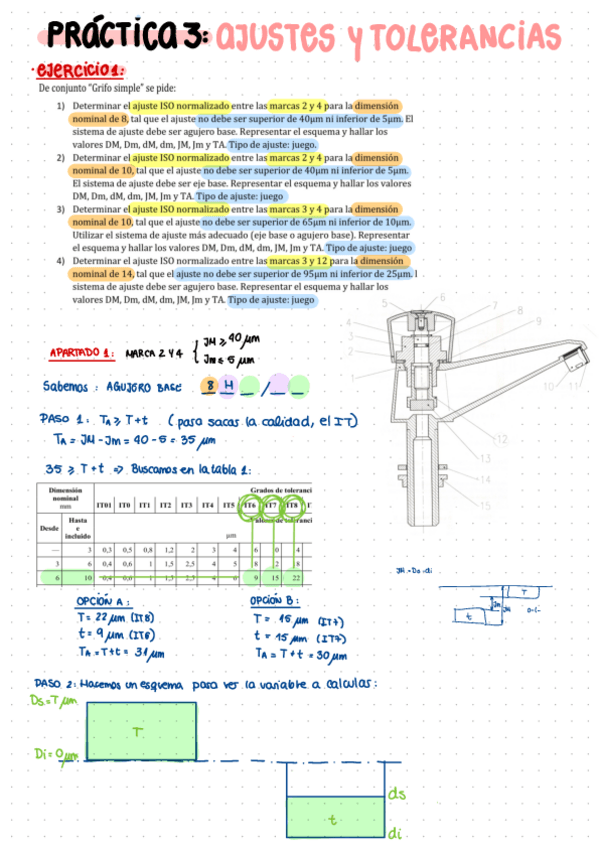 PRÁCTICA 3: AJUSTES Y TOLERANCIAS
·EJERCICIO 1:
De conjunto "Grifo simple" se pide:
1) Determinar el ajuste ISO normalizado entre las marcas 2 y 4 para la dimensión
nominal de 8, tal que el ajuste no debe ser superior de 40µm ni inferior de 5µm. El
sistema de ajuste debe ser agujero base. Representar el esquema y hallar los
valores DM, Dm, dM, dm, JM, Jm y TA. Tipo de ajuste: juego.
2) Determinar el ajuste ISO normalizado entre las marcas 2 y 4 para la dimensión
nominal de 10, tal que el ajuste no debe ser superior de 40µm ni inferior de 5µm.
El sistema de ajuste debe ser eje base. Representar el esquema y hallar los valores
DM, Dm, dM, dm, JM, Jm y TA. Tipo de ajuste: juego
3) Determinar el ajuste ISO normalizado entre las marcas 3 y 4 para la dimensión
nominal de 10, tal que el ajuste no debe ser superior de 65µm ni inferior de 10µm.
Utilizar el sistema de ajuste más adecuado (eje base o agujero base). Representar
el esquema y hallar los valores DM, Dm, dM, dm, JM, Jm y TA. Tipo de ajuste: juego
4) Determinar el ajuste ISO normalizado entre las marcas 3 y 12 para la dimensión
nominal de 14, tal que el ajuste no debe ser superior de 95µm ni inferior de 25µm. l
sistema de ajuste debe ser agujero base. Representar el esquema y hallar los
valores DM, Dm, dM, dm, JM, Jm y TA. Tipo de ajuste: juego
5 6 7 8 9
4
3
2
1
10 11
12
13
14
15
APARTADO 1: MARCA 2 Y 4 { JM ≥ 40 µm
Jm ≤ 5 µm
Sabemos : AGUJERO BASE 8 H _ / _ _
PASO 1: TA ≥ T+t (para sacas la calidad, el IT)
TA = JM - Jm = 40 - 5 = 35 µm
35 ≥ T+t => Buscamos en la tabla 1:
Dimensión nominal mm Grados de toleranci
IT01 IT0 IT1 IT2 IT3 IT4 IT5 IT6 IT7 IT8
Desde Hasta e incluido µm
— 3 0,3 0,5 0,8 1,2 2 3 4 6 0 4
3 6 0,4 0,6 1 1,5 2,5 4 5 8 2 8
6 10 0,4 0,6 1 1,5 2,5 4 6 9 15 22
JM = Ds - di
T
Jm JM
t
OPCIÓN A : OPCIÓN B :
T = 22 µm (IT8) T = 15 µm (IT7)
t = 9 µm (IT6) t = 15 µm (IT7)
TA = T+t = 31 µm TA = T+t = 30 µm
PASO 2: Hacemos un esquema para ver la variable a calculas :
Ds = T µm
T
Di = 0 µm
ds
t
di